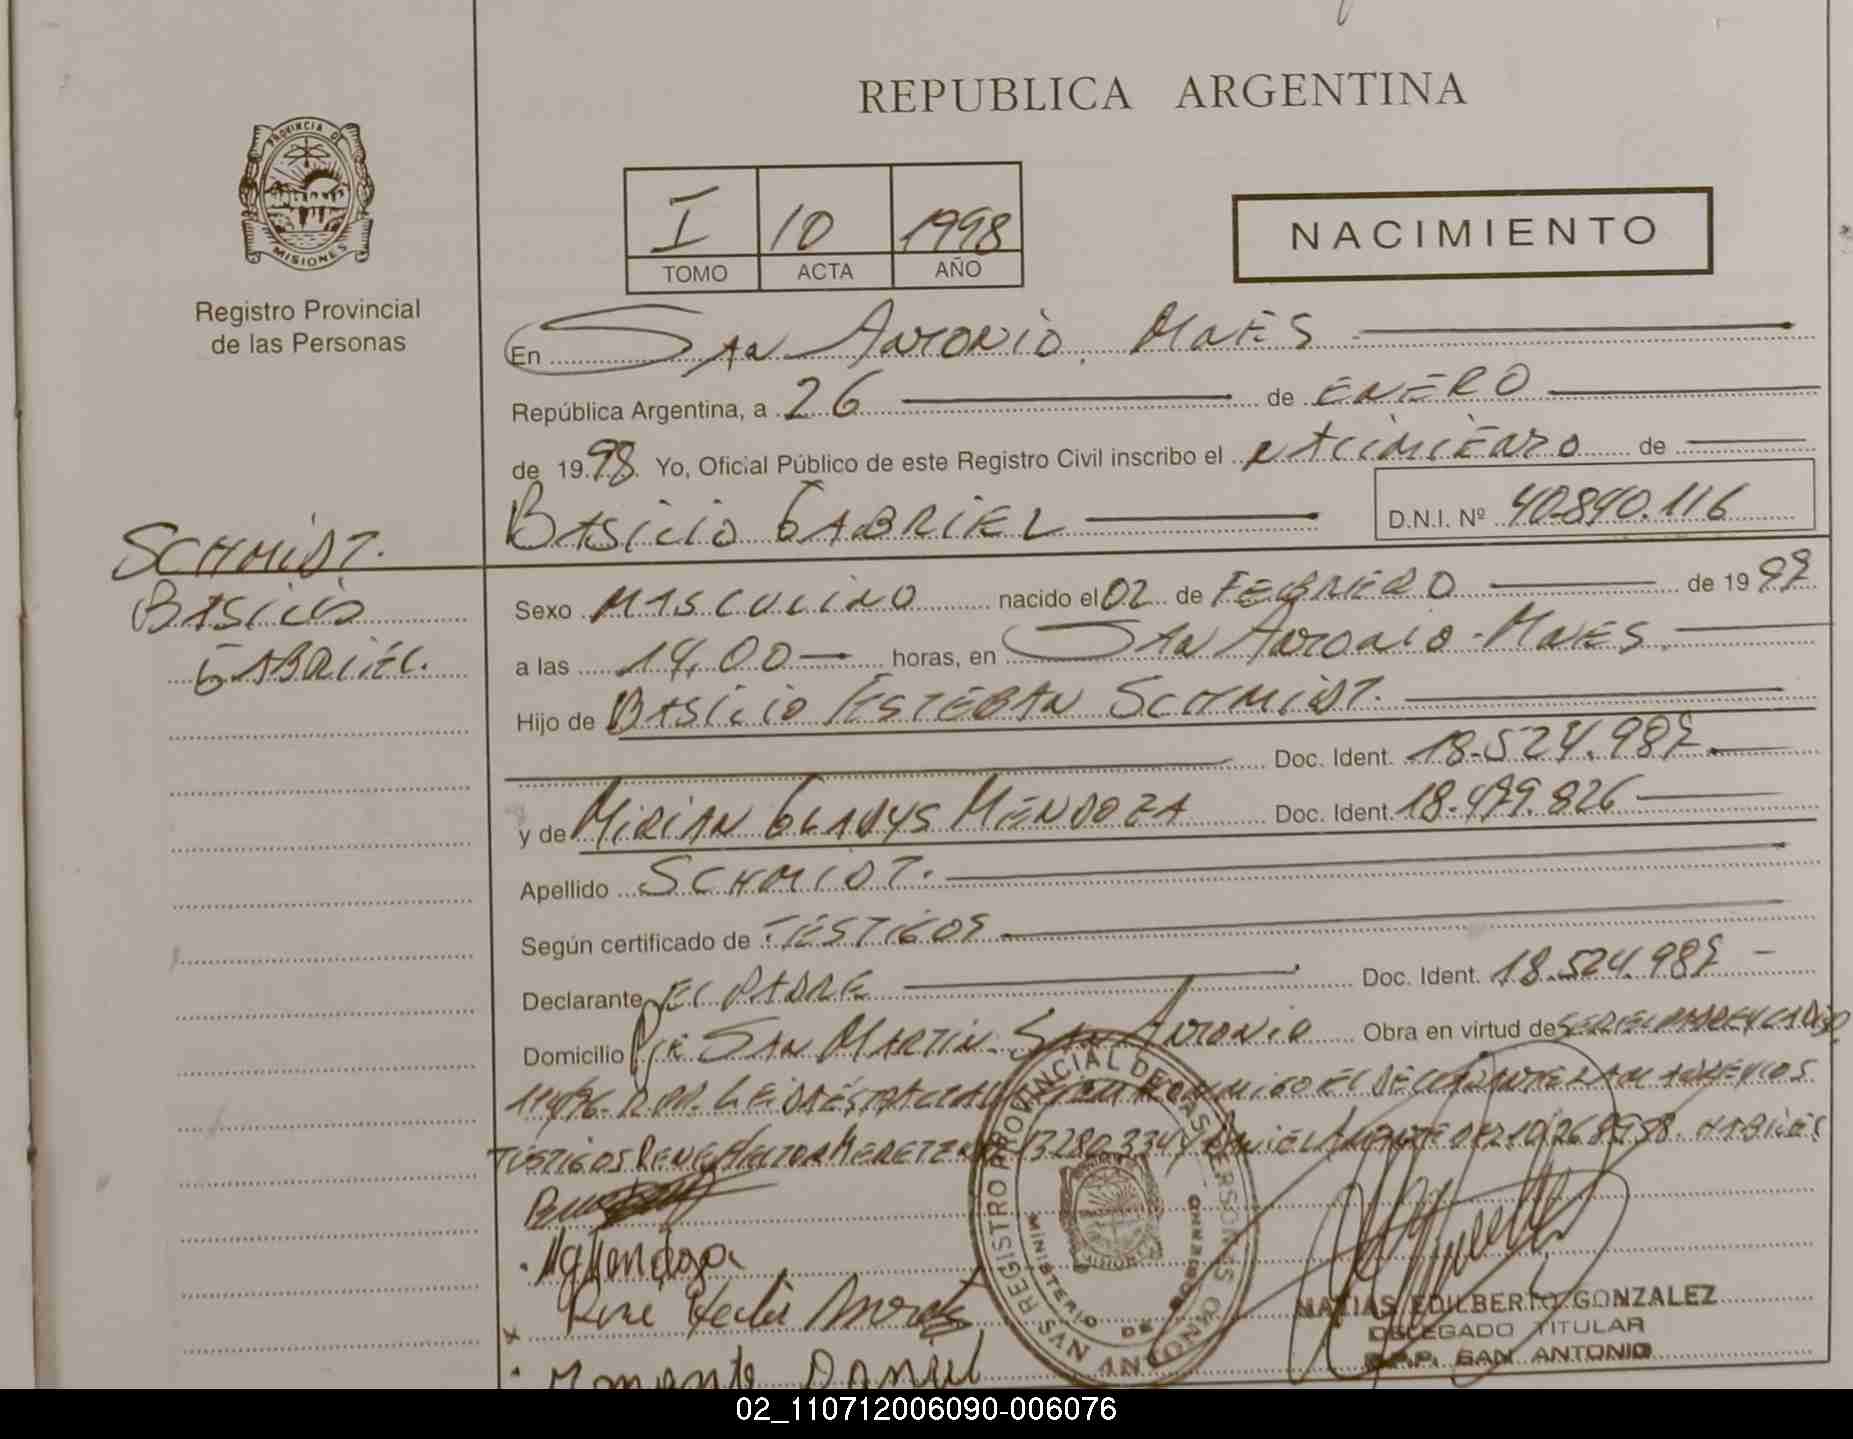 REPUBLICA ARGENTINA
PROVINCIA DE
MISIONES
Registro Provincial
de las Personas
I 10 1998
TOMO ACTA AÑO
NACIMIENTO
En SAN ANTONIO. MNES
República Argentina, a 26 de ENERO
de 1998 Yo, Oficial Público de este Registro Civil inscribo el NACIMIENTO de
BASILIO GABRIEL D.N.I. Nº 40.890.116
SCHMIDT.
BASILIO
GABRIEL.
Sexo MASCULINO nacido el 02 de FEBRERO de 1997
a las 14,00 horas, en SAN ANTONIO - MNES
Hijo de BASILIO ESTEBAN SCHMIDT.
Doc. Ident. 18.524.987
y de MIRIAN GLADYS MENDOZA Doc. Ident. 18.479.826
Apellido SCHMIDT.
Según certificado de TESTIGOS
Declarante EL PADRE Doc. Ident. 18.524.987
Domicilio SAN MARTIN. SAN ANTONIO Obra en virtud de SER EL PADRE Y
LEIDA EL ACTA CONMIGO EL DECLARANTE LA MADRE Y LOS
TESTIGOS RENE HECTOR DANIEL HABILES
Mendoza
Rene Hector
Daniel
REGISTRO PROVINCIAL DE LAS PERSONAS
MINISTERIO DE GOBIERNO
SAN ANTONIO
MATIAS EDILBERTO GONZALEZ
DELEGADO TITULAR
R.P.P. SAN ANTONIO
02_110712006090-006076